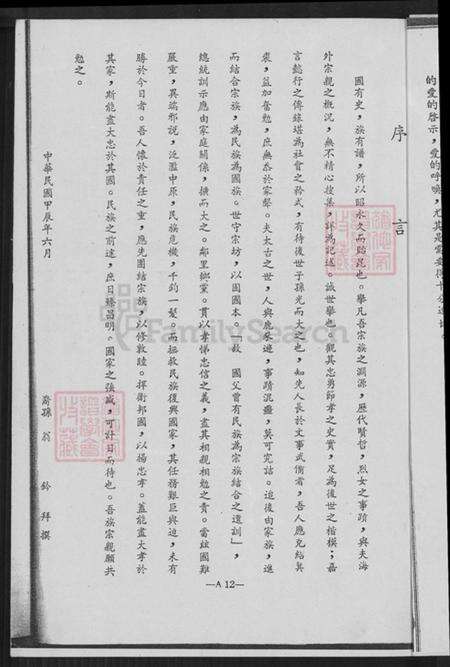 的愛的啓示，愛的呼喚，尤其是
序言
國有史，族有譜，所以昭永久而跡昆也。舉凡吾宗族之淵源，歷代賢哲，烈女之事蹟，與夫海
外宗親之概況，無不精心搜集，詳為記述。誠世舉也。觀其忠勇節孝之史實，足為後世之楷模；嘉
言懿行之傳錄堪為社會之矜式，有待後世子孫光而大之也，如先人長於文事武備者，吾人應克紹其
裘，益加奮勉，庶無忝於家聲。夫太古之世，人與鹿豕遊，事蹟混亂，莫可究詰。迨後由家族，進
而結合宗族，為民族為國族。世守宗坊，以固國本。故　國父曾有民族為宗族結合之遺訓」，
總統訓示應由家庭關係，擴而大之。鄰里鄉黨。貫以孝悌忠信之義，盡其相親相勉之責。當茲國難
嚴重，異端邪說，泛濫中原，民族危機，千鈞一髮。而拯救民族復興國家，其任務艱巨與迫，未有
勝於今日者。吾人懍於責任之重，應先團結宗族，以修敦睦。捍衛邦國，以揚忠孝。蓋能盡大孝於
其家，斯能盡大忠於其國。民族之前途，庶日臻昌明。國家之強盛，可計日而待也。吾族宗親願共
勉之。
中華民國甲辰年六月
裔孫　翁　鈐　拜撰
—A 12—
FamilySearch